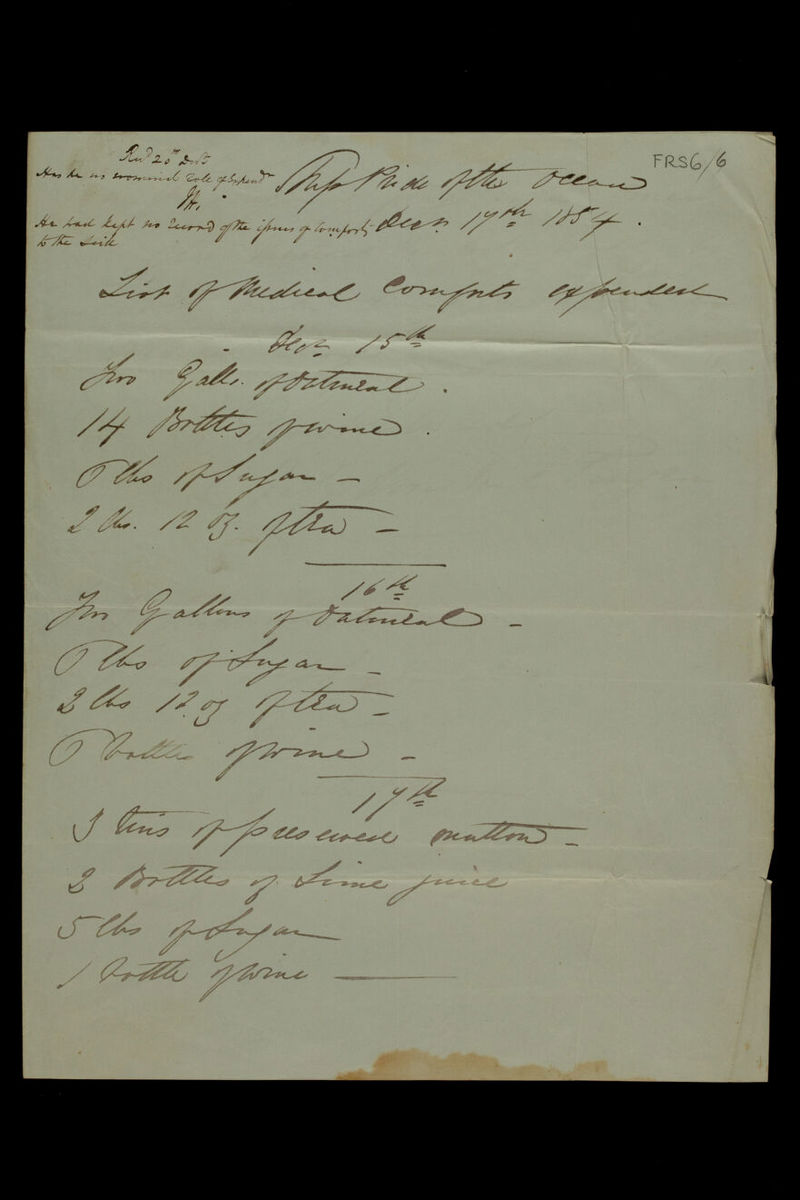 Recd 20th Decr
FRS6/6
Has he no nominal roll of Expendre
Ship Pride of the Ocean
He had kept no record of the issues of Comforts
to the Sick
Decr. 17th 1854.
List of Medical Comforts expended
Decr. 15th
Two Galls. of Oatmeal.
14 Bottles of wine.
6 lbs of Sugar –
2 lbs. 12 oz. of tea –
16th
Two Gallons of Oatmeal –
6 lbs of Sugar –
2 lbs 12 oz of tea –
6 bottles of wine –
17th
3 tins of preserved mutton –
2 Bottles of Lime juice
5 lbs of Sugar
1 bottle of wine —